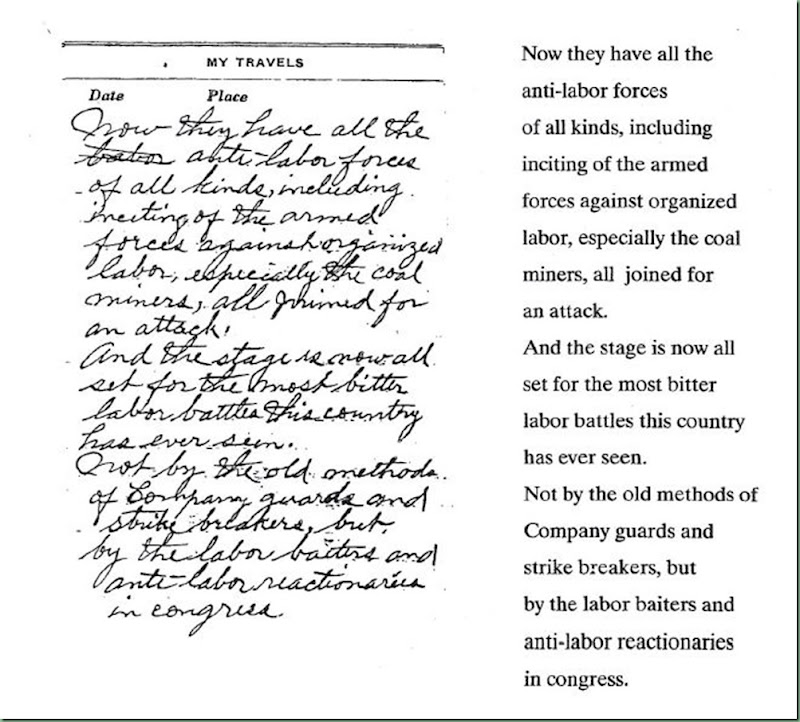 MY TRAVELS
Date Place
Now they have all the
labor anti-labor forces
of all kinds, including
inciting of the armed
forces against organized
labor, especially the coal
miners, all joined for
an attack.
And the stage is now all
set for the most bitter
labor battles this country
has ever seen.
Not by the old methods
of Company guards and
strike breakers, but
by the labor baiters and
anti-labor reactionaries
in congress.
Now they have all the
anti-labor forces
of all kinds, including
inciting of the armed
forces against organized
labor, especially the coal
miners, all joined for
an attack.
And the stage is now all
set for the most bitter
labor battles this country
has ever seen.
Not by the old methods of
Company guards and
strike breakers, but
by the labor baiters and
anti-labor reactionaries
in congress.